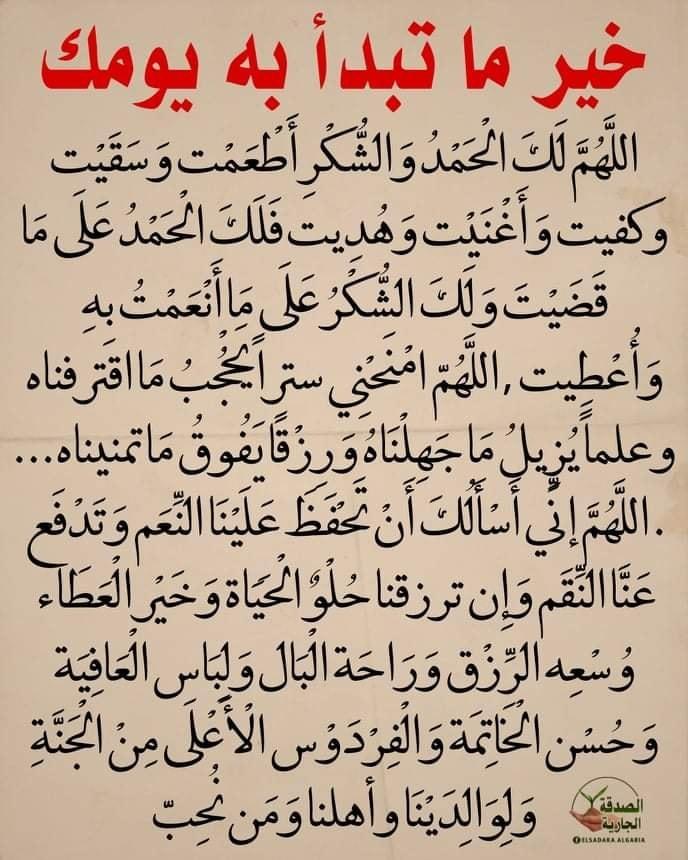 خير ما تبدأ به يومك
اللَّهُمَّ لَكَ الْحَمْدُ وَالشُّكْرِ أَطْعَمْت وَسَقَيْت
وَكفيت وَأَغْنَيْت وَهُدِيت فَلَكَ الْحَمْدُ عَلَى مَا
قَضَيْتَ وَلَكَ الشُّكْرُ عَلَى مَا أَنْعَمْتُ بِهِ
وَأُعْطِيت , اللَّهُمّ امْنَحْنِي ستراً يَحْجُبُ مَا اقترفناه
وعلماً يُزِيلُ مَا جَهِلْنَاهُ وَرِزْقًا يَفُوقُ مَا تمنيناه...
. اللَّهُمَّ إنِّي أَسْأَلُكَ أَنْ تَحْفَظَ عَلَيْنَا النِّعَم وَتَدْفَع
عَنَّا النِّقَم وَإِن ترزقنا حُلْوٌ الْحَيَاة وَخَيْر الْعَطَاء
وُسْعِه الرِّزْق وَرَاحَة الْبَال وَلِبَاس الْعَافِيَة
وَحُسْن الْخَاتِمَة وَالْفِرْدَوْس الْأَعْلَى مِنْ الْجَنَّةِ
وَلِوَالِدَيْنَا وأهلنا وَمَن نُحِبّ
الصدقة
الجارية
ELSADARA.ALGARIA